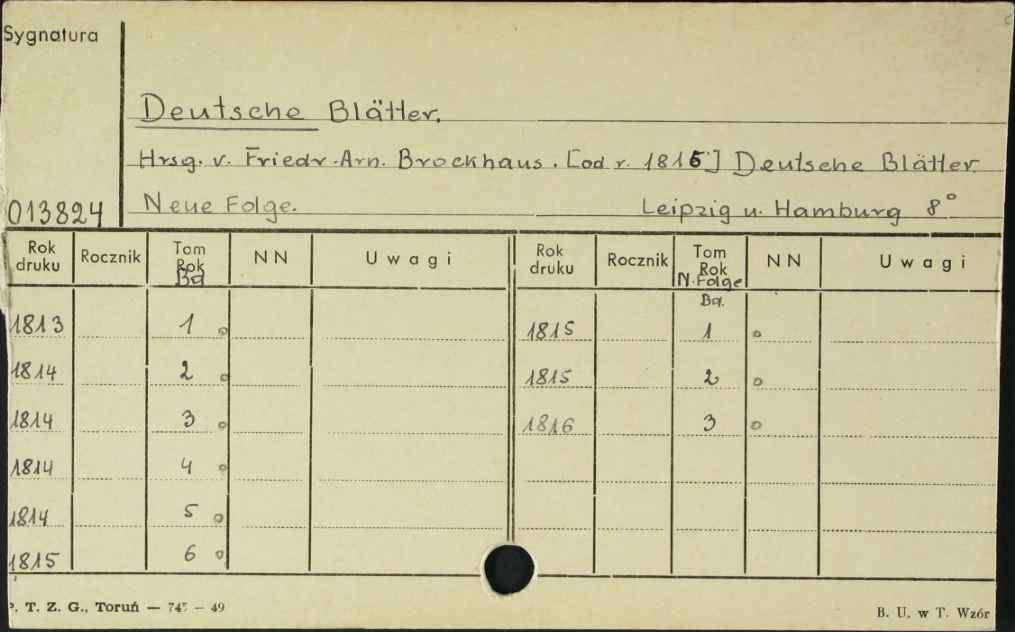 Sygnatura
Deutsche Blätter.
Hrsg. v. Friedr. Arn. Brockhaus. [od r. 1815] Deutsche Blätter
013824 Neue Folge. Leipzig u. Hamburg 8°
Rok druku Rocznik Tom Rok Bd NN Uwagi Rok druku Rocznik Tom Rok N. Folge Bd. NN Uwagi
1813 1 o 1815 1 o
1814 2 o 1815 2 o
1814 3 o 1816 3 o
1814 4 o
1814 5 o
1815 6 o
P. T. Z. G., Toruń — 745 — 49 B. U. w T. Wzór